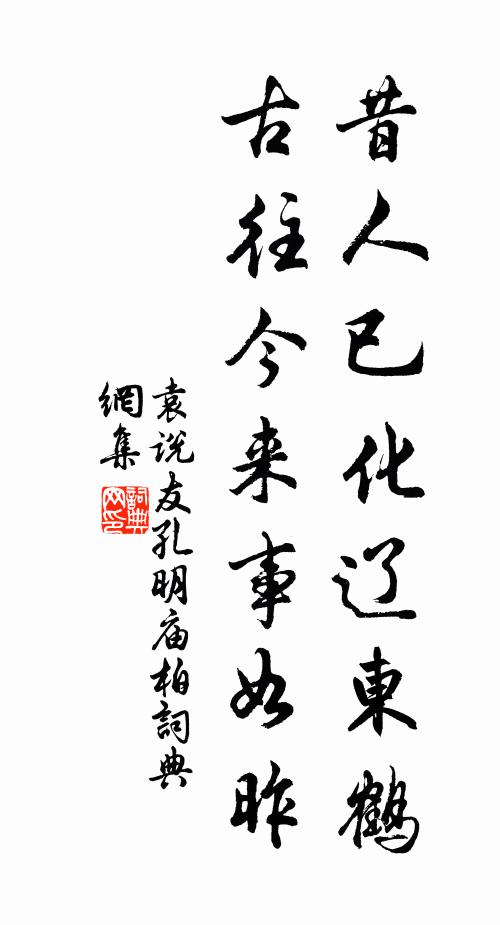 昔人已化辽東鹤
古往今来事如昨
袁说友孔明庙柏詞典
網集
詞典网印